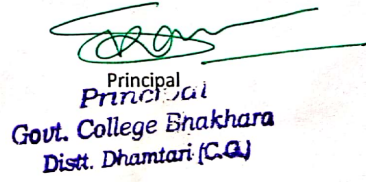 Principal
Principal
Govt. College Bhakhara
Distt. Dhamtari (C.G.)